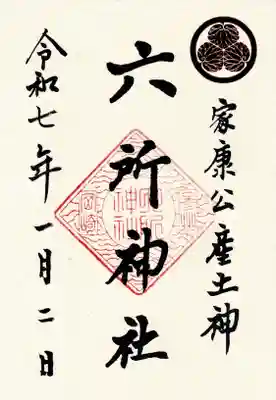 家康公産土神
六所神社
令和七年一月二日